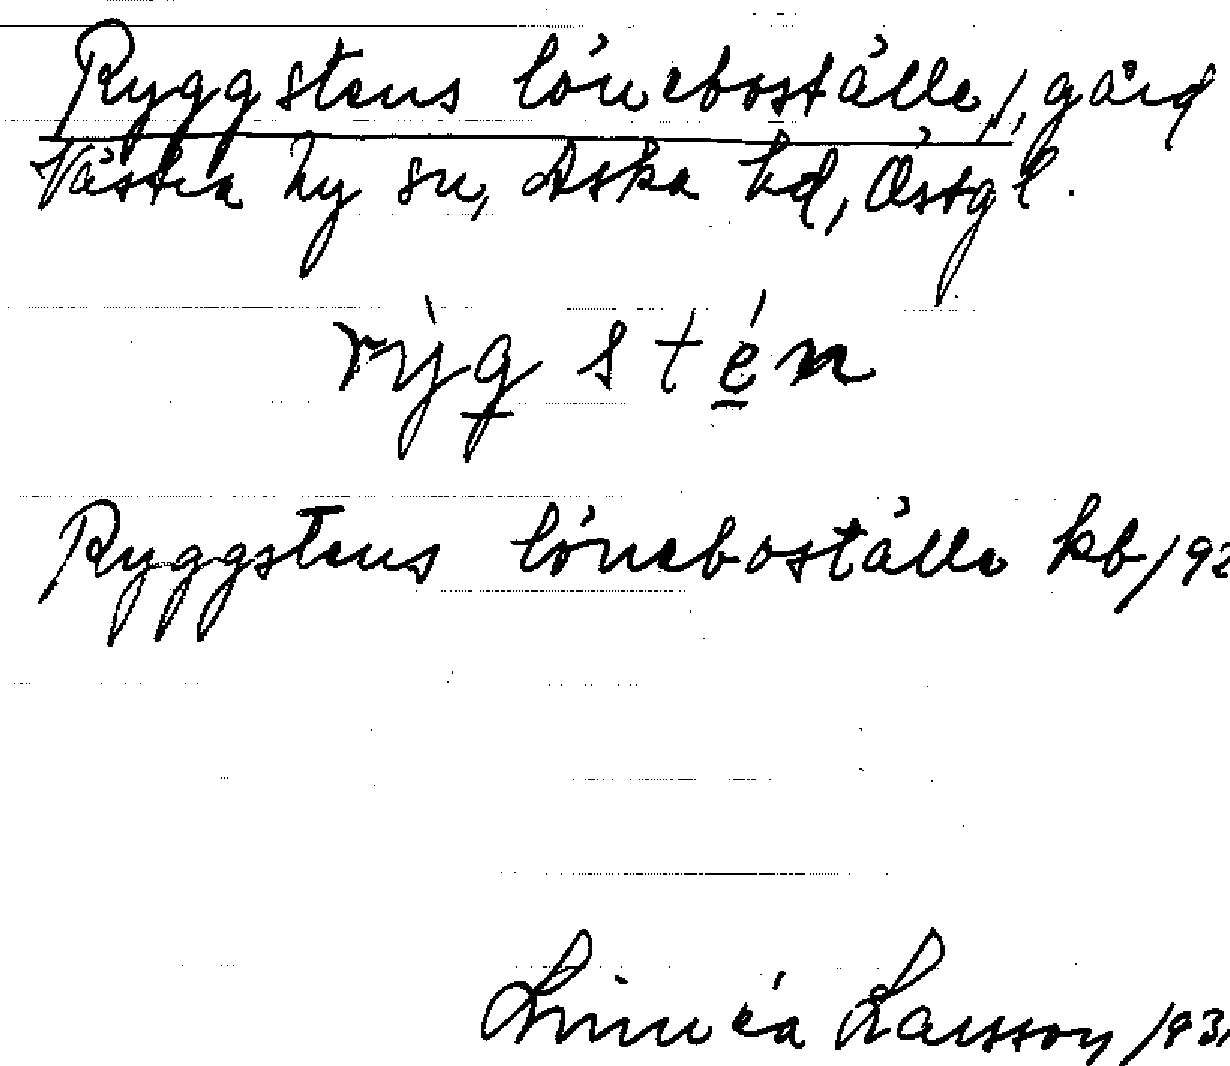 Ryggstens löneboställe/, gård
Västra Ny sn, Aska hd, Östgl.
rýg stén
Ryggstens löneboställe kb/92
Linnéa Larsson /93